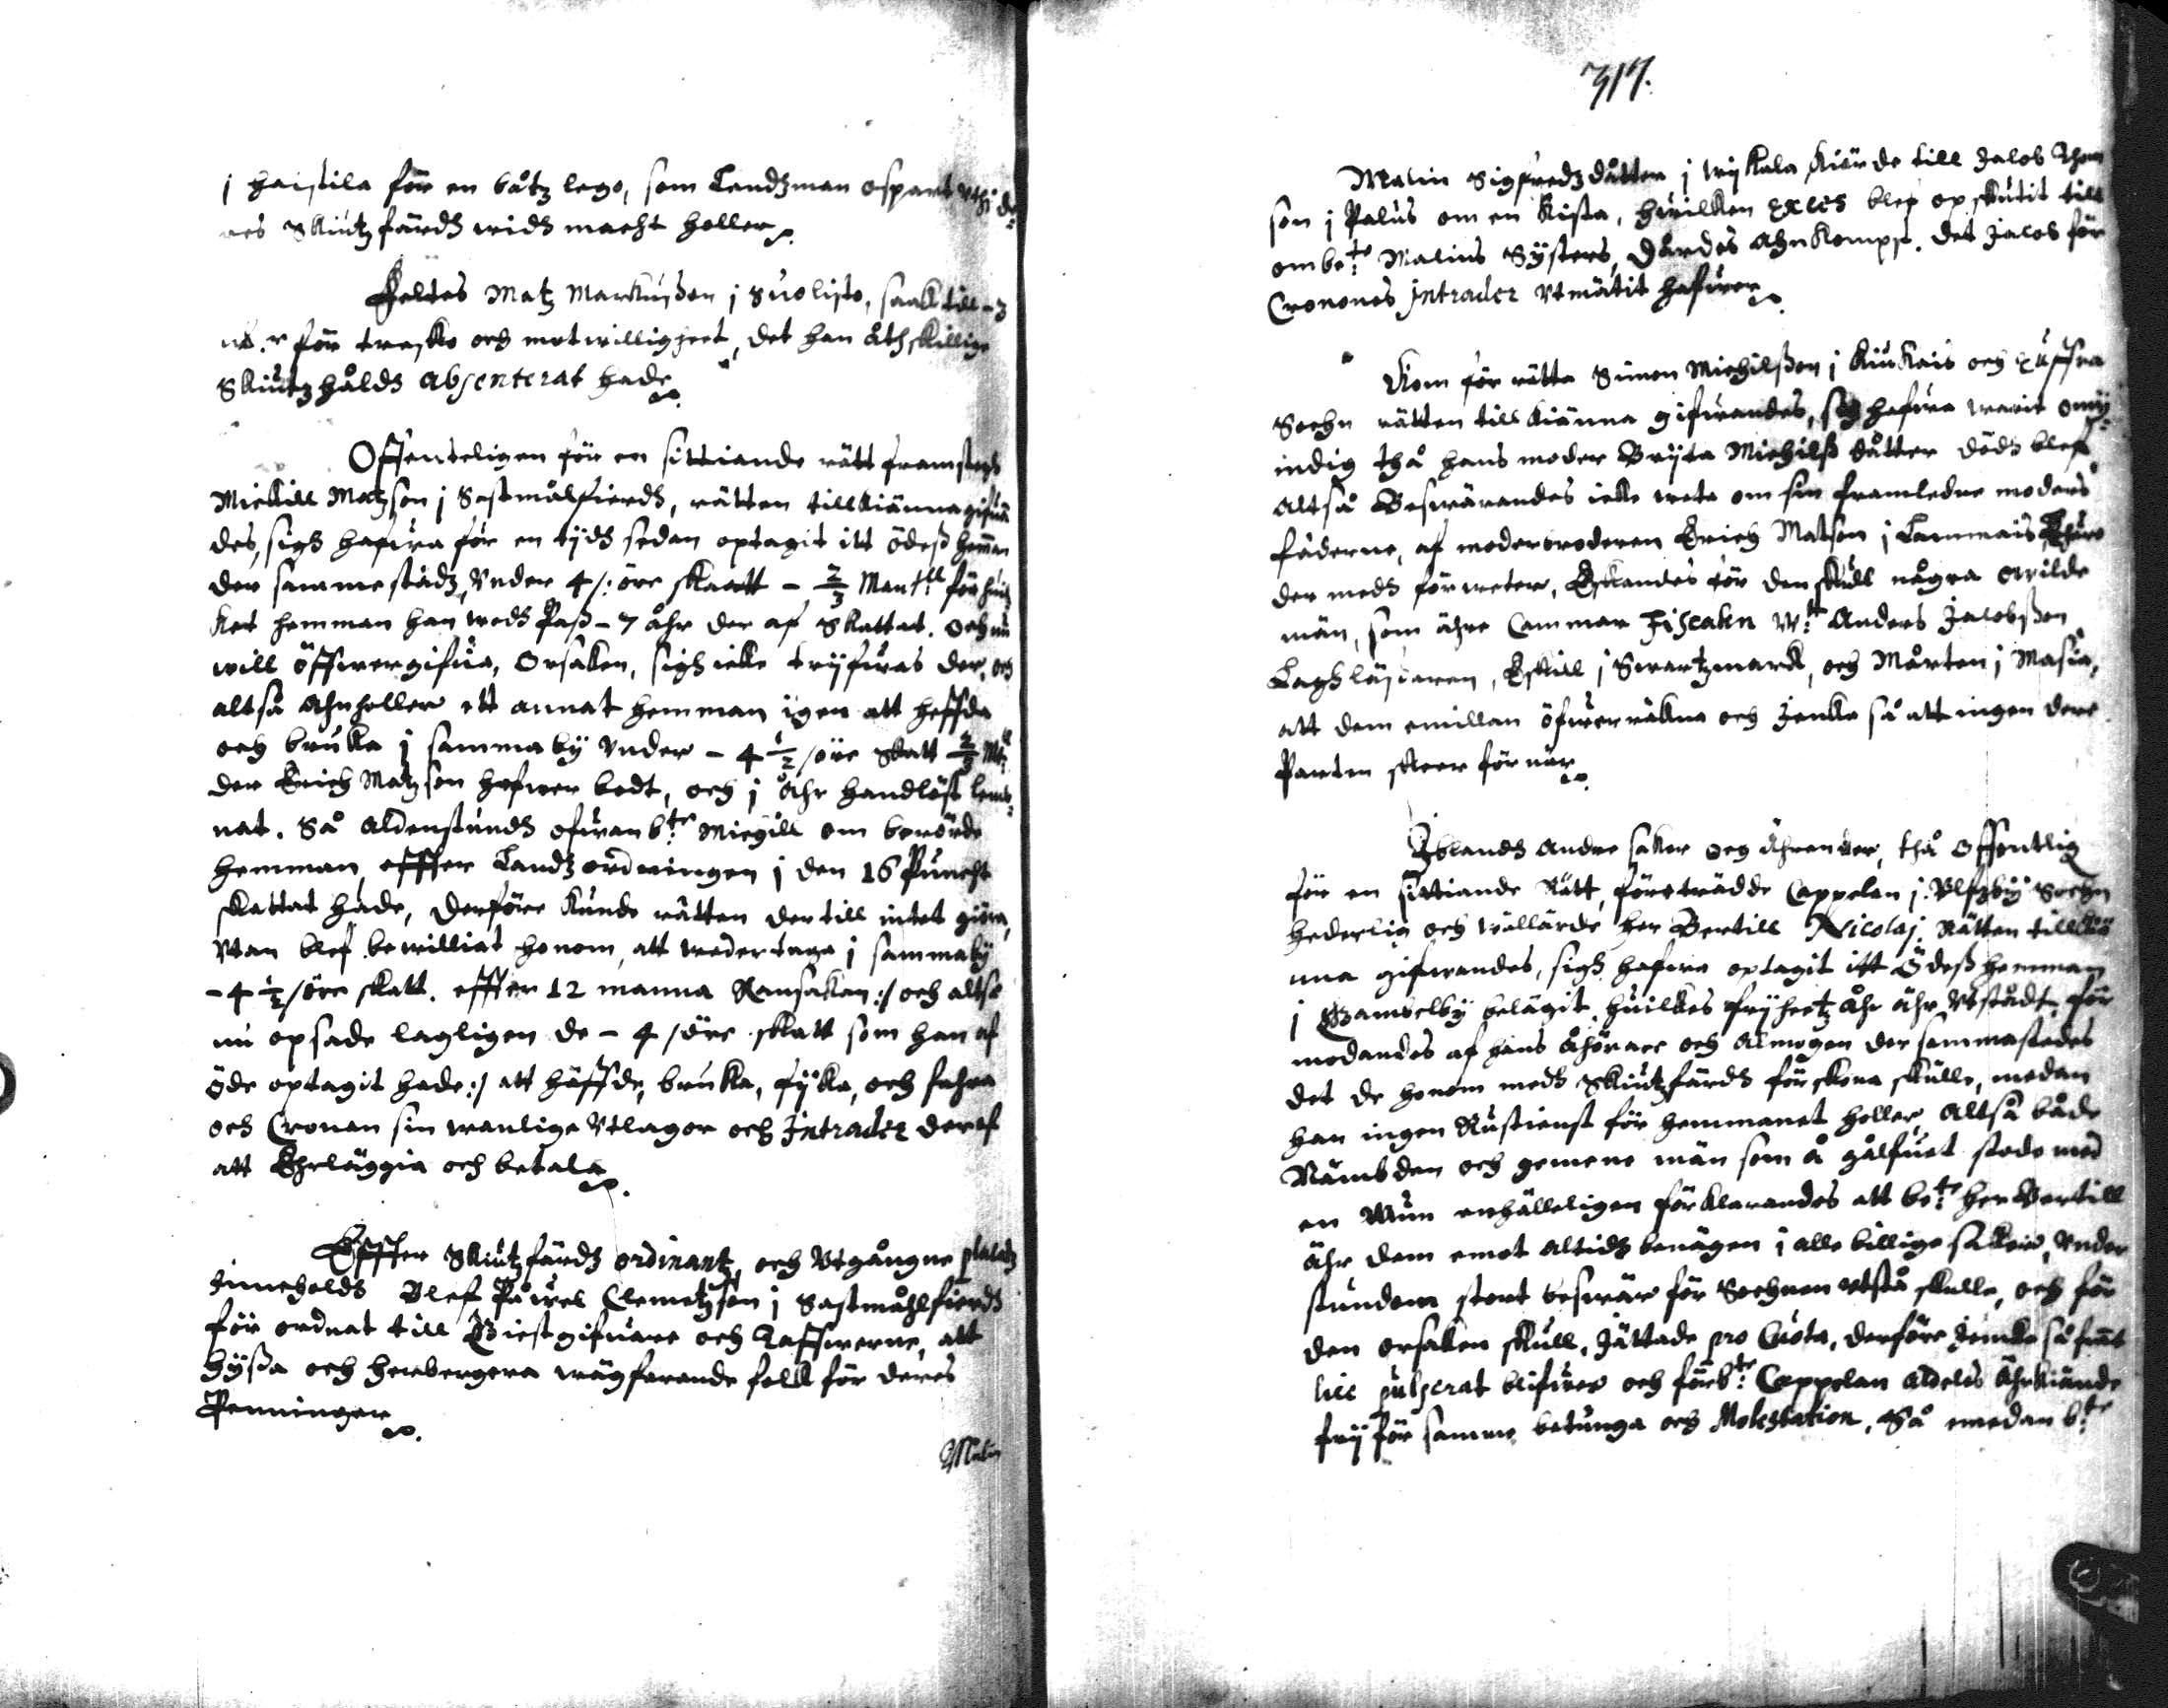 j haistila för en båtz lego, som Lendzman ospart vthi de:
res Skiutzfärdh widh macht holler
Feltes Matz Markußon j Suolisto, saak till - 3
mk.r för tresko och motwilligheet, det han åthskillige
Skiutzhåldh absenterat hade
Offenteligen för en sittiande rätt framsteegh
Mickill Matzson j Sastmålafierdh, rätten till kiänna gifua
des, sigh hafwa för en tijdh sedan optagit itt ödeß hemman
der sammestädz, Vnder 4 /: öre skatt - 2/3 Mantll för huil
ket hemman han wedh Paß - 7 åhr der af Skattat. och nu
will öffwergifua, Orsaken, sigh icke tryfwas der, och
altså Ahnholler ett annat hemman igen att heffda
och bruka j samma by vnder - 4 1/2 /öre Skatt 2/3 Mt:l
der Erich Matzson hafwer bodt, och i åhr handlöst lemb:
nat. Så aldenstundh ofwanb:te Michill om berörde
hemman, effter Landz ordningen j den 16 Puncht
skattat hade, derföre kunde rätten der till intet giöra,
Vtan blef bewilliat honom, att wedertaga j samma by
- 4 1/2 /öre skatt. effter 12 manna Ransakan :/ och altså
nu opsade lagligen de - 4 /öre skatt som han af
öde optagit hade :/ att häffde, bruka, fykia, och fahra
och Cronan sin wanlige Vtlagor och Intrader deraf
att Ehrläggia och betala
Effter Skiutzfärdz ordinantz, och Vtgångne placatz
Inneholdh Blef Påwel Clemetzson j Sastmåhlfierdh
för ordnat till Giestgifware och Taffwerne, att
hyßa och herbergera wägfarande folk för deres
Penningar
Malin
317.
Malin Sigfredzdåtter j wykala, kiärde till Jacob Thom
son j Palus om en kista, hwilken exces blef opskutit till
ombe:te Malins Systers, Dårdes Ahnkompst. det Jacob för
Cronones Intrader vtmätit hafwer
Kom för rätta Simon Michilßon j Kiukais och Euffra
Sochn rätten till kiänna gifwandes, sigh hafwa warit omÿ:
indig thå hans moder Bryta Michilß dåtter dödh blef
Altså Beswärandes icke weta om sin framledne moders
fäderne, af moderbroderen Erich Matson j Lammais
der medh förweter, Eskandes för den skull någre owilde
män, som ähre Cammar Fiscaln W:tt Anders Jacobßon
Laghläsaren, Eskill j Swartzmark, och Mårten j Masia,
att dem emillan öfwerräkna och Jemka så att ingen dere
Parten skeer för när
Iblandh andre saker och Ährender, thå Offentlig
för en sittiande Rätt, företrädde Cappelan j. Vlfzby Sochn
hederlig och wällärde her Bertill Nicolaj Rätten till kiä
nna gifwandes, sigh hafwa optagit itt Ödeß hemman
j Gambelby belägit, huilkes fryheetz åhr ähr vtståndt, för
modandes af hans Åhörare och Almogen der sammastedes
det de honom medh Skiutzfärdh för skona skulle, medan
han ingen Rustienst för hemmanet holler, Altså både
Nämbden och gemene män som å gålfuet stode med
en Mun enhälleligen förklarandes att be:te her Bertill
ähr dem emot altidh benägen i alle billige saker, vnder
stundom stort beswär för Sochnen vtstå skulle, och för
den orsaken skull, Jättade pro Cuota, derföre Jemka så framt
hic pulserat blifwer och förb:te Cappelan aldeles åhrkiände
fry för samme betunga och Molestation, Så emedan b:te